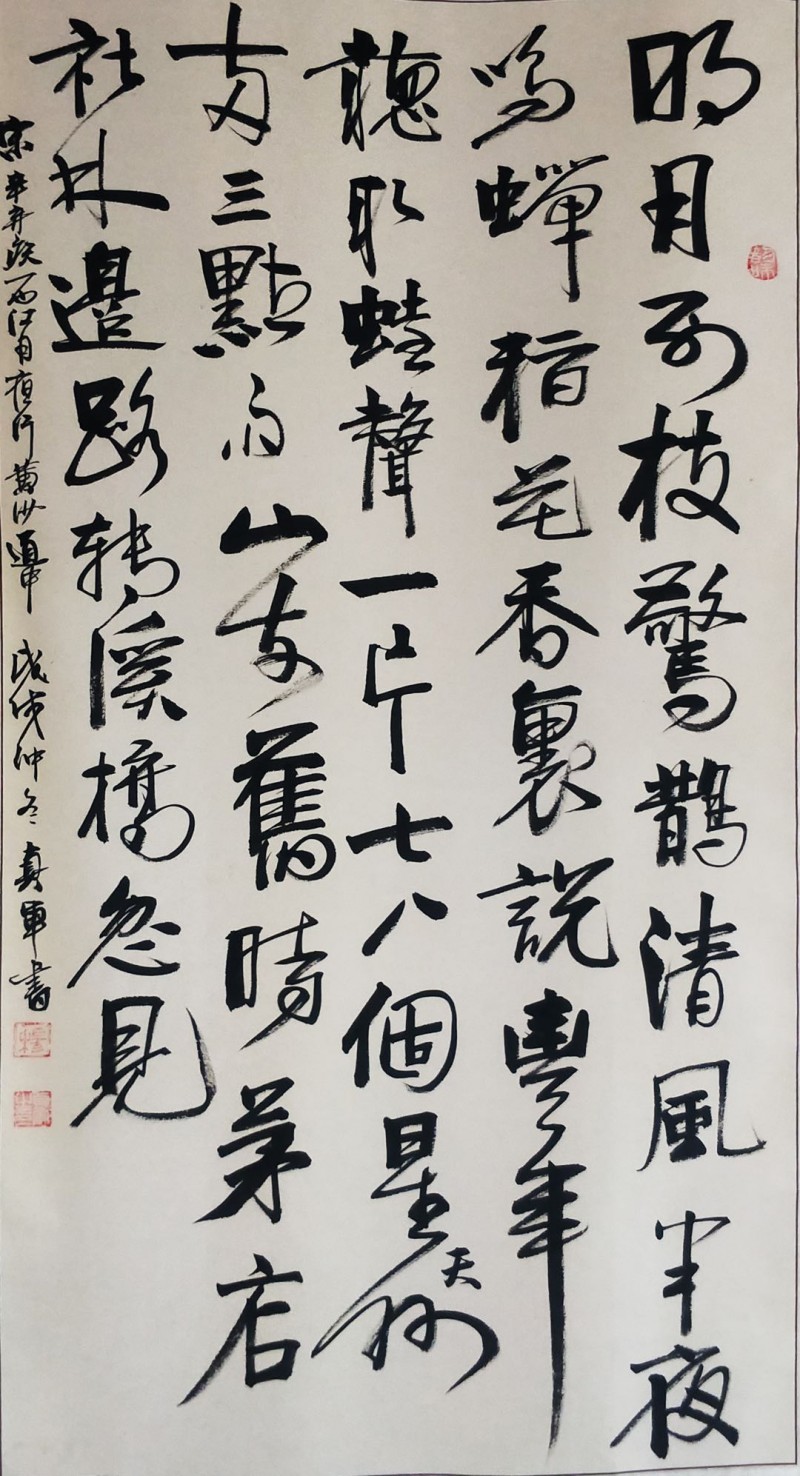 明月别枝驚鵲清風半夜
鳴蟬稻花香裏說豐年
聽取蛙聲一片七八個星天外
兩三點雨山前舊時茅店
社林邊路轉溪橋忽見
宋辛弃疾西江月夜行黄沙道中 戊戌仲冬真軍書